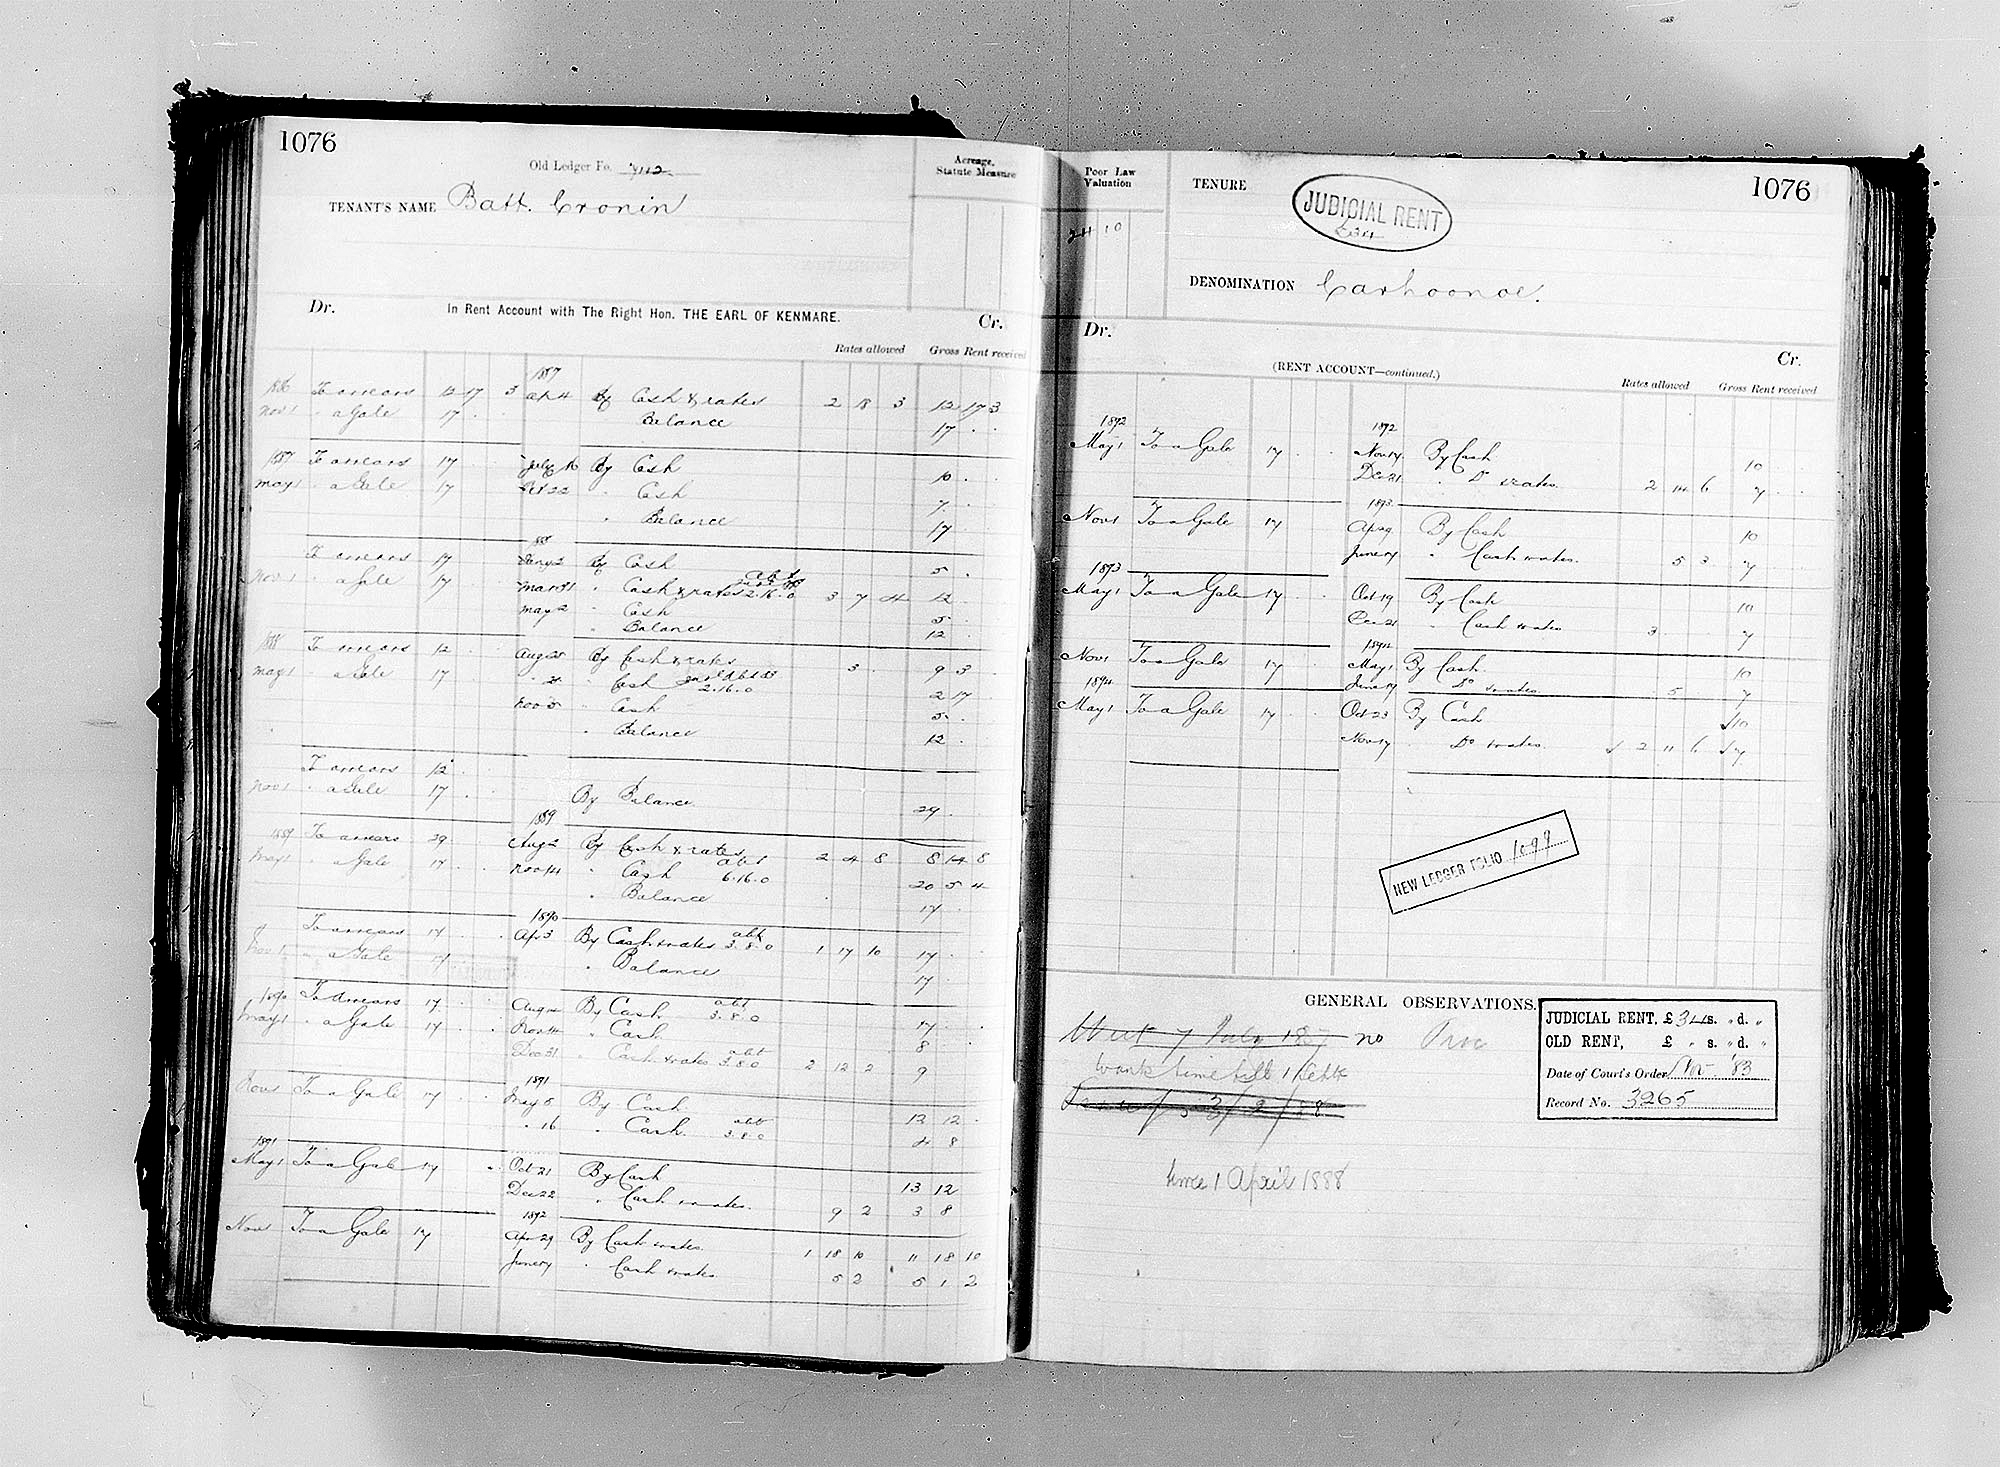 1076
Old Ledger Fo.
Acreage,
Statute Measure
TENANT'S NAME Batt. Cronin
Dr. In Rent Account with The Right Hon. THE EARL OF KENMARE. Cr.
Rates allowed Gross Rent received
1887
1886 To arrears 12 17 3 Apr 4 By Cash & rates 2 18 3 12 17 3
Nov 1 " a Gale 17 . . Balance 17 . .
1887 To arrears 17 July 16 By Cash 10 .
May 1 " a Gale 17 Oct 22 " Cash 7 .
" Balance 17
1888
To arrears 17 Jany 2 By Cash 5 .
Nov 1 " a Gale 17 Mar 31 " Cash & rates abt 2.16.0 3 7 4 12
May 2 " Cash 5
" Balance 12
1888 To arrears 12 Aug By Cash & rates 3 . 9 3
May 1 " a Gale 17 " Cash 2.16.0 2 17
Nov 5 " Cash 5 .
" Balance 12 .
To arrears 12
Nov 1 " a Gale 17 By Balance 29 .
1889
1889 To arrears 29 Aug 2 By Cash & rates 2 4 8 8 14 8
May 1 " a Gale 17 Nov 14 " Cash abt 6.16.0 20 5 4
" Balance 17
1890
To arrears 17 Apr 3 By Cash & rates abt 3.8.0 1 17 10 17
Nov 1 " a Gale 17 " Balance 17
1890 To arrears 17 Aug By Cash abt 3.8.0 17
May 1 " a Gale 17 Nov 14 " Cash 8
Dec 31 " Cash & rates abt 3.8.0 2 12 2 9
1891
Nov 1 To a Gale 17 May 8 By Cash 12 12
" 16 " Cash abt 3.8.0 4 8
1891
May 1 To a Gale 17 Oct 21 By Cash 13 12
Dec 22 " Cash & rates 9 2 3 8
1892
Nov 1 To a Gale 17 Apr 29 By Cash & rates 1 18 10 11 18 10
June 17 " Cash & rates 5 2 5 1 2
Poor Law
Valuation
24 10
TENURE
JUDICIAL RENT
£34
1076
DENOMINATION Carhoonoe.
Dr. Cr.
(RENT ACCOUNT—continued.)
Rates allowed Gross Rent received
1892 1892
May 1 To a Gale 17 Nov 17 By Cash 10
Dec 21 " Do & rates 2 14 6 7
1893
Nov 1 To a Gale 17 Apr 9 By Cash 10
June 17 " Cash & rates. 5 3 7
1893
May 1 To a Gale 17 Oct 19 By Cash 10
Dec 21 " Cash & rates 3 7
1894
Nov 1 To a Gale 17 May 1 By Cash 10
June 17 Do & rates 5 7
1894
May 1 To a Gale 17 Oct 23 By Cash 10
Nov 17 Do & rates. 2 11 6 7
NEW LEDGER FOLIO 1099
GENERAL OBSERVATIONS.
Writ 7 July 187 no
wants time till 1 Sept
time 1 April 1888
JUDICIAL RENT, £34 s. " d. "
OLD RENT, £ " s. " d. "
Date of Court's Order Nov '83
Record No. 3265